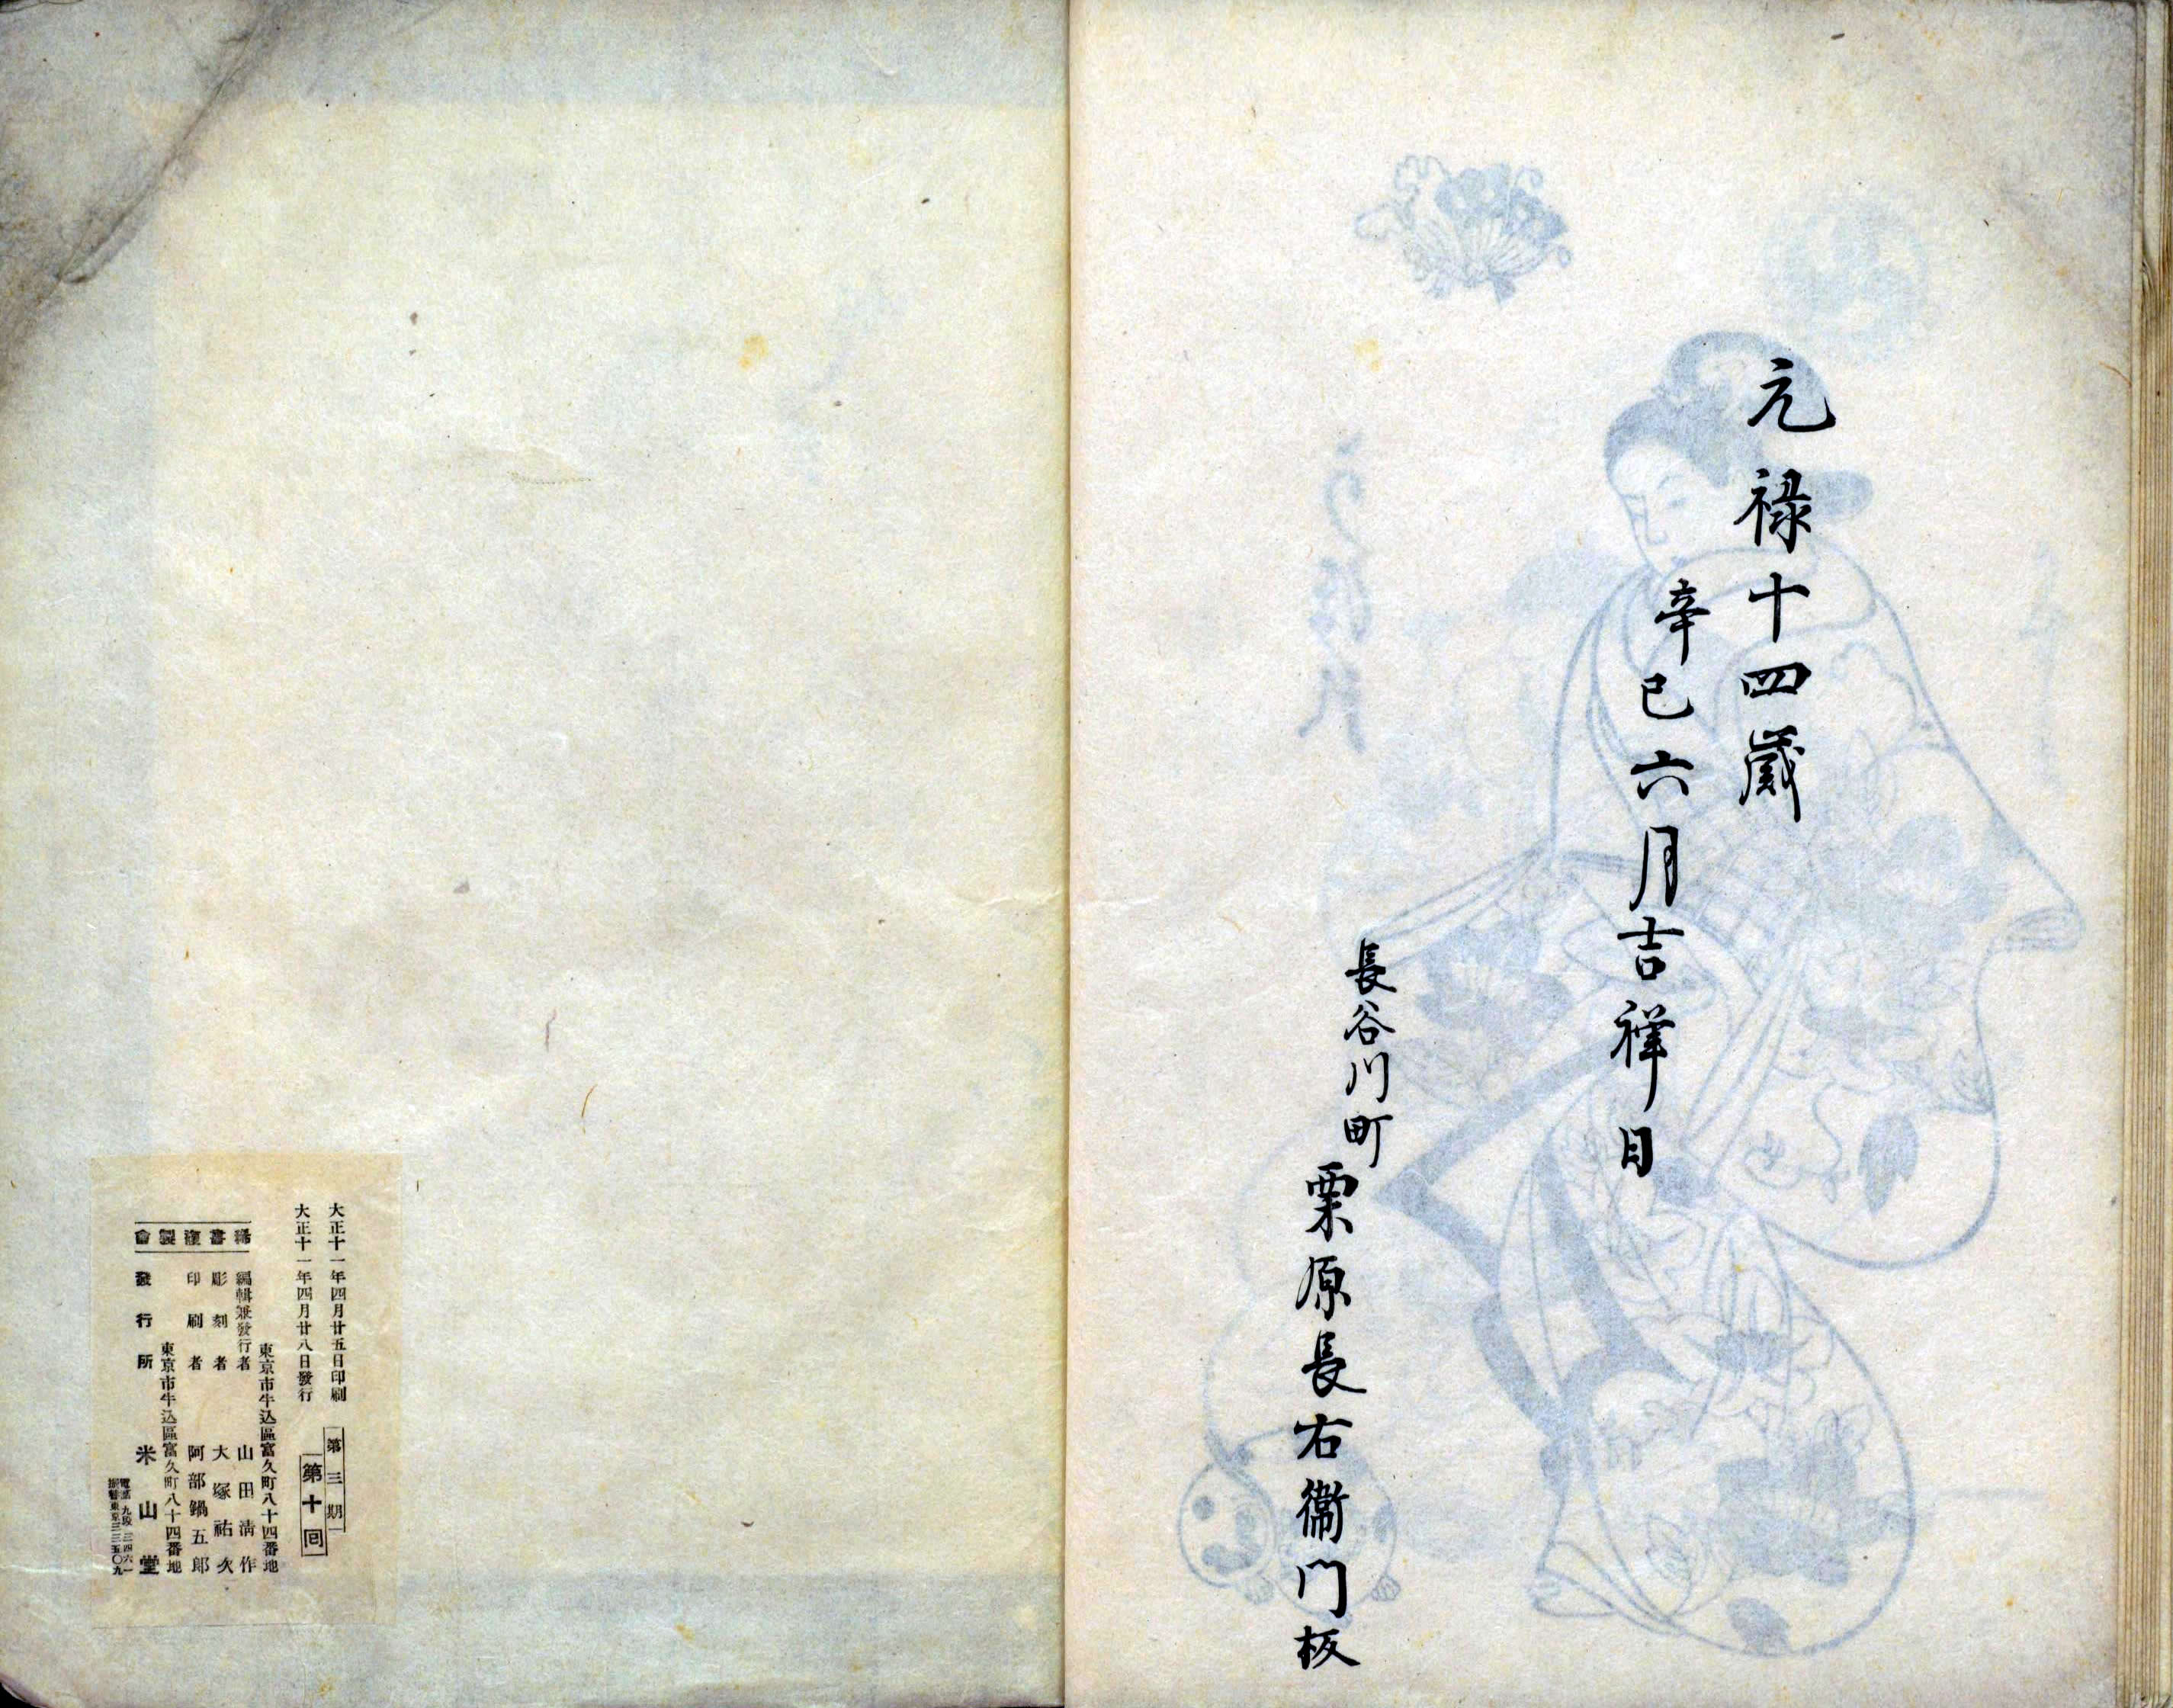 元禄十四歳
辛巳六月吉祥日
長谷川町
栗原長右衛門板
大正十一年四月廿五日印刷
大正十一年四月廿八日發行
第三期
第十回
稀書複製會
東京市牛込區富久町八十四番地
編輯兼發行者 山田清作
彫刻者 大塚祐次
印刷者 阿部鍋五郎
東京市牛込區富久町八十四番地
發行所 米山堂
電話九段三四六一
振替東京三三五〇九